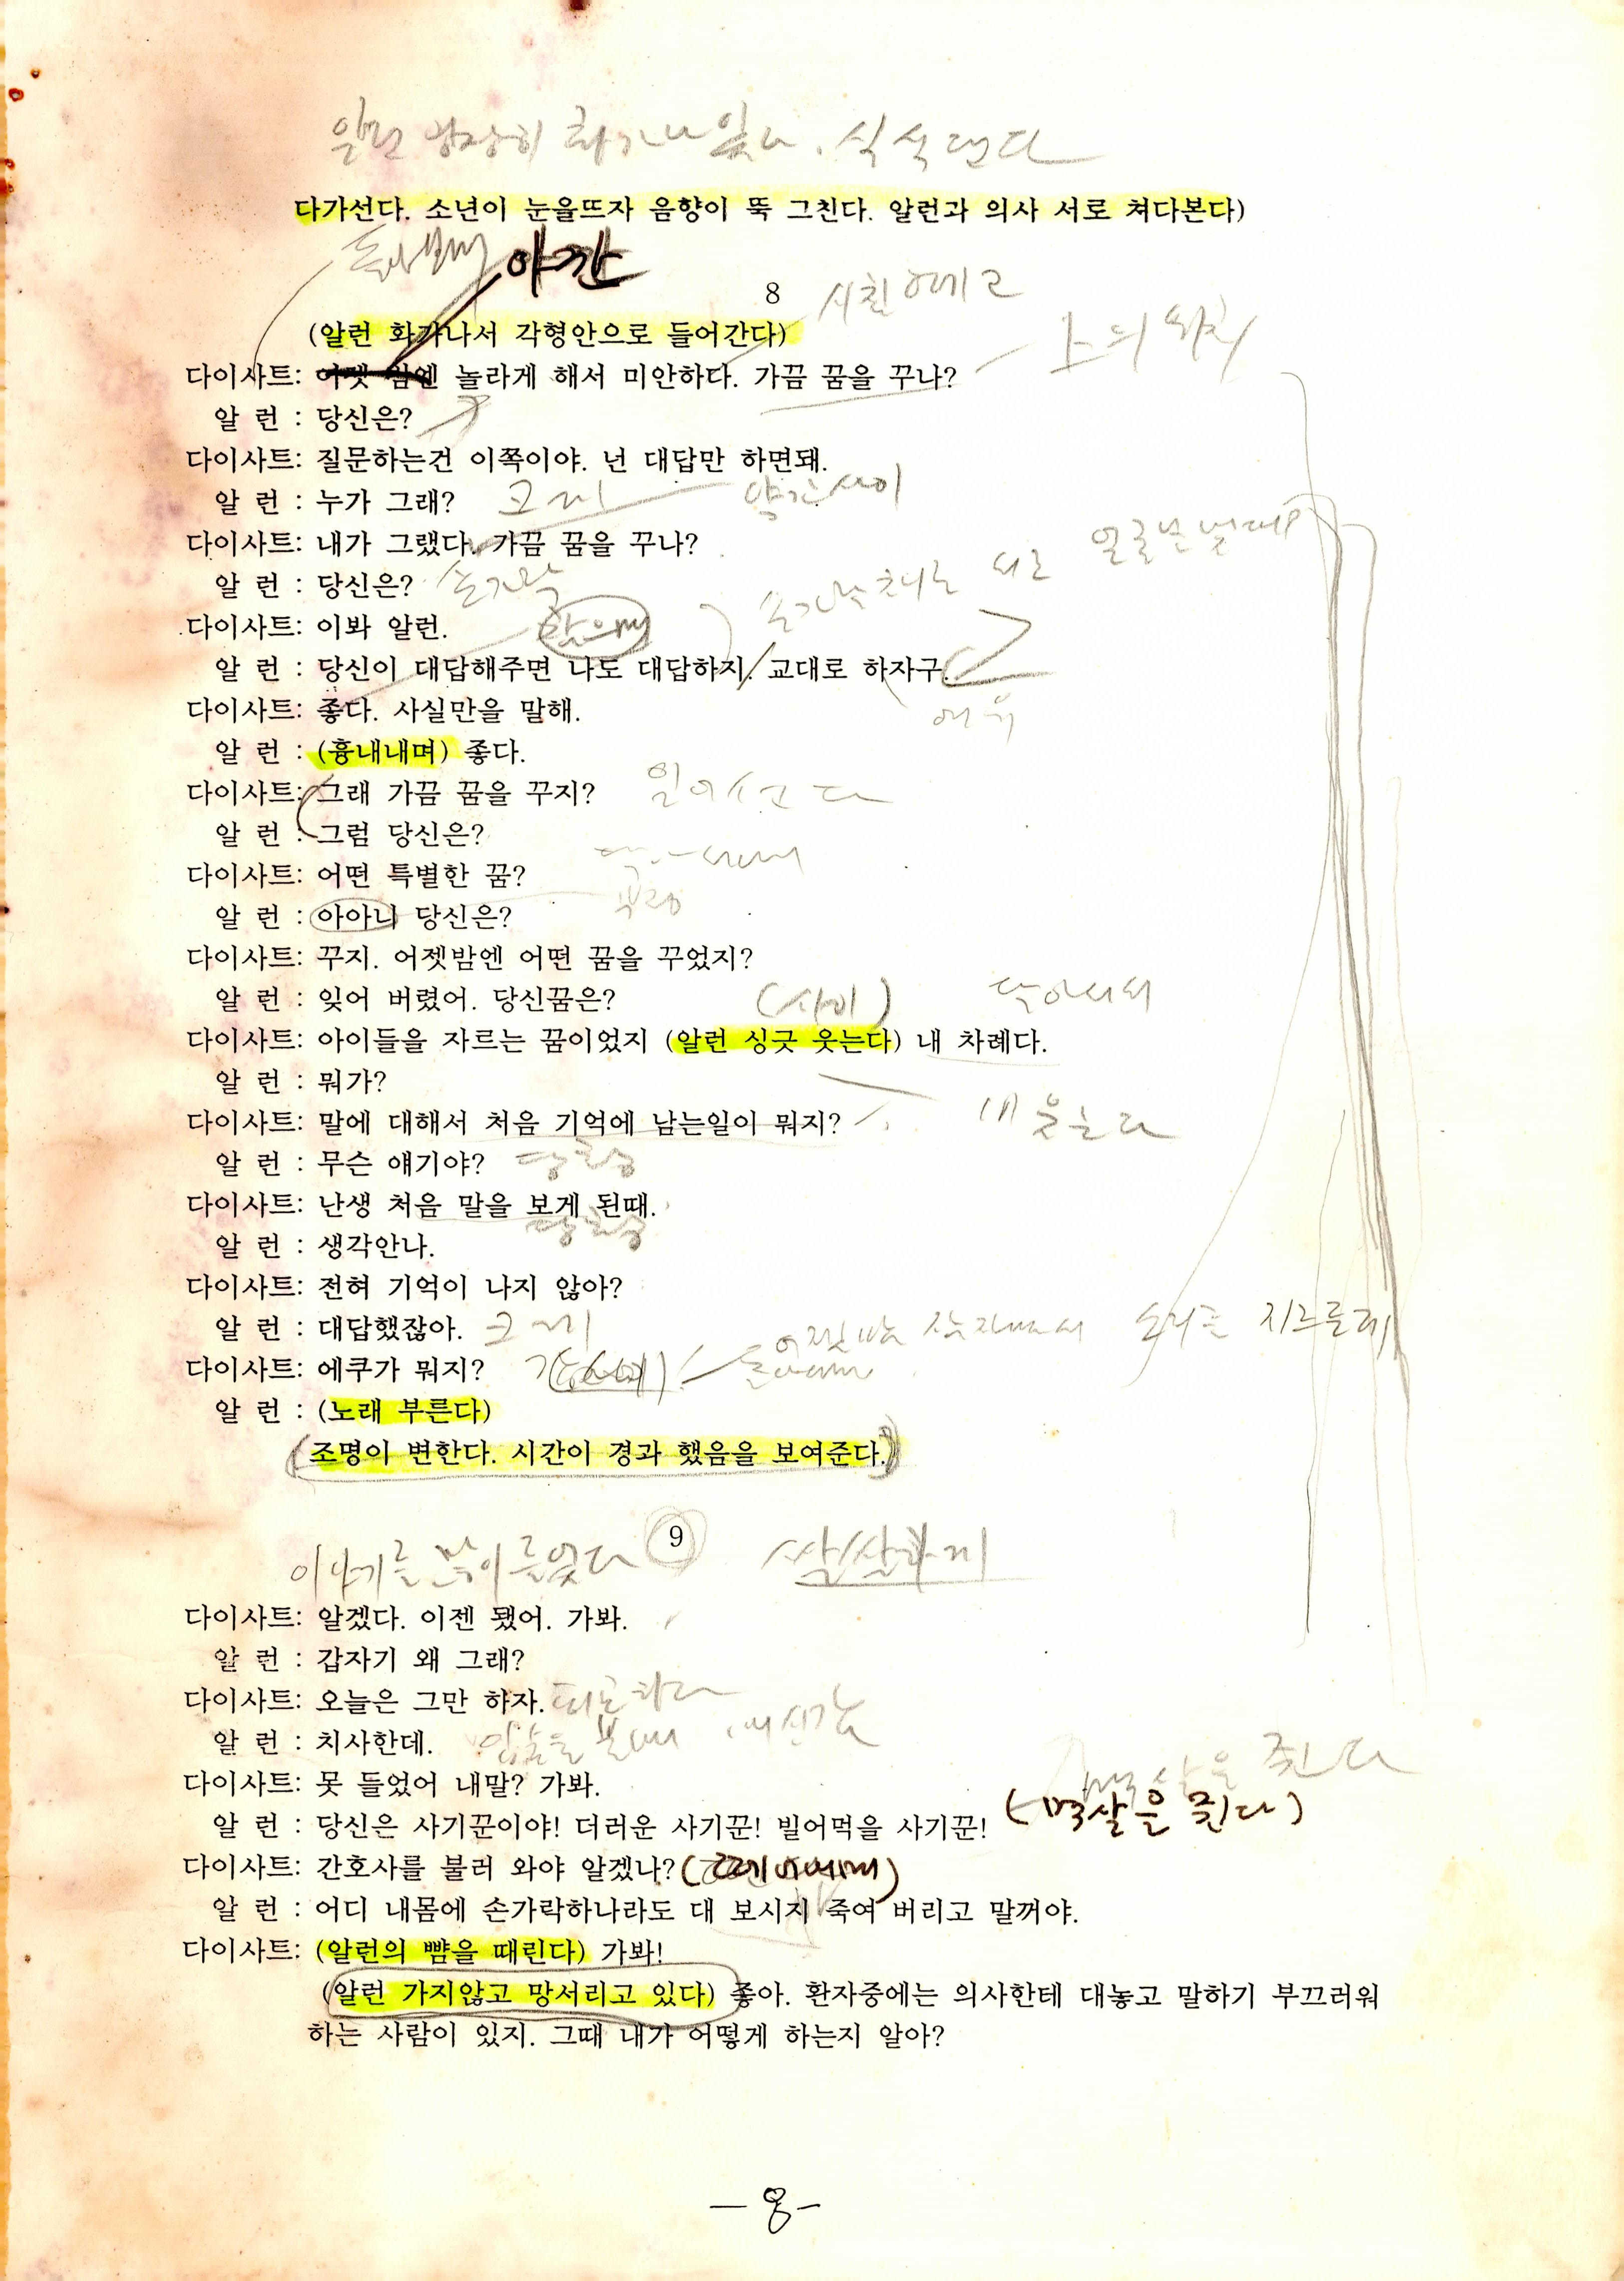 알런 굉장히 화가나 있다. 식식댄다
다가선다. 소년이 눈을뜨자 음향이 뚝 그친다. 알런과 의사 서로 쳐다본다)
아깐
8
(알런 화가나서 각형안으로 들어간다)
다이사트: 어젯 밤엔 놀라게 해서 미안하다. 가끔 꿈을 꾸나?
알 런 : 당신은?
다이사트: 질문하는건 이쪽이야. 넌 대답만 하면돼.
알 런 : 누가 그래? 크게 약간 사이
다이사트: 내가 그랬다. 가끔 꿈을 꾸나?
알 런 : 당신은? 손가락
다이사트: 이봐 알런.
알 런 : 당신이 대답해주면 나도 대답하지. 교대로 하자구.
다이사트: 좋다. 사실만을 말해.
알 런 : (흉내내며) 좋다.
다이사트: 그래 가끔 꿈을 꾸지? 일어선다
알 런 : 그럼 당신은?
다이사트: 어떤 특별한 꿈?
알 런 : 아아니 당신은?
다이사트: 꾸지. 어젯밤엔 어떤 꿈을 꾸었지?
알 런 : 잊어 버렸어. 당신꿈은? (사이)
다이사트: 아이들을 자르는 꿈이었지 (알런 싱긋 웃는다) 내 차례다.
알 런 : 뭐가?
다이사트: 말에 대해서 처음 기억에 남는일이 뭐지?
알 런 : 무슨 얘기야? 당혹
다이사트: 난생 처음 말을 보게 된때.
알 런 : 생각안나. 당혹
다이사트: 전혀 기억이 나지 않아?
알 런 : 대답했잖아. 크게
다이사트: 에쿠가 뭐지?
알 런 : (노래 부른다)
(조명이 변한다. 시간이 경과 했음을 보여준다.)
9
이야기를 많이 들었다 쌀쌀하게
다이사트: 알겠다. 이젠 됐어. 가봐.
알 런 : 갑자기 왜 그래?
다이사트: 오늘은 그만 하자. 피곤하다
알 런 : 치사한데.
다이사트: 못 들었어 내말? 가봐.
멱살을 쥔다
알 런 : 당신은 사기꾼이야! 더러운 사기꾼! 빌어먹을 사기꾼! (멱살을 쥔다)
다이사트: 간호사를 불러 와야 알겠나?
알 런 : 어디 내몸에 손가락하나라도 대 보시지 죽여 버리고 말꺼야.
다이사트: (알런의 뺨을 때린다) 가봐!
(알런 가지않고 망서리고 있다) 좋아. 환자중에는 의사한테 대놓고 말하기 부끄러워
하는 사람이 있지. 그때 내가 어떻게 하는지 알아?
-8-